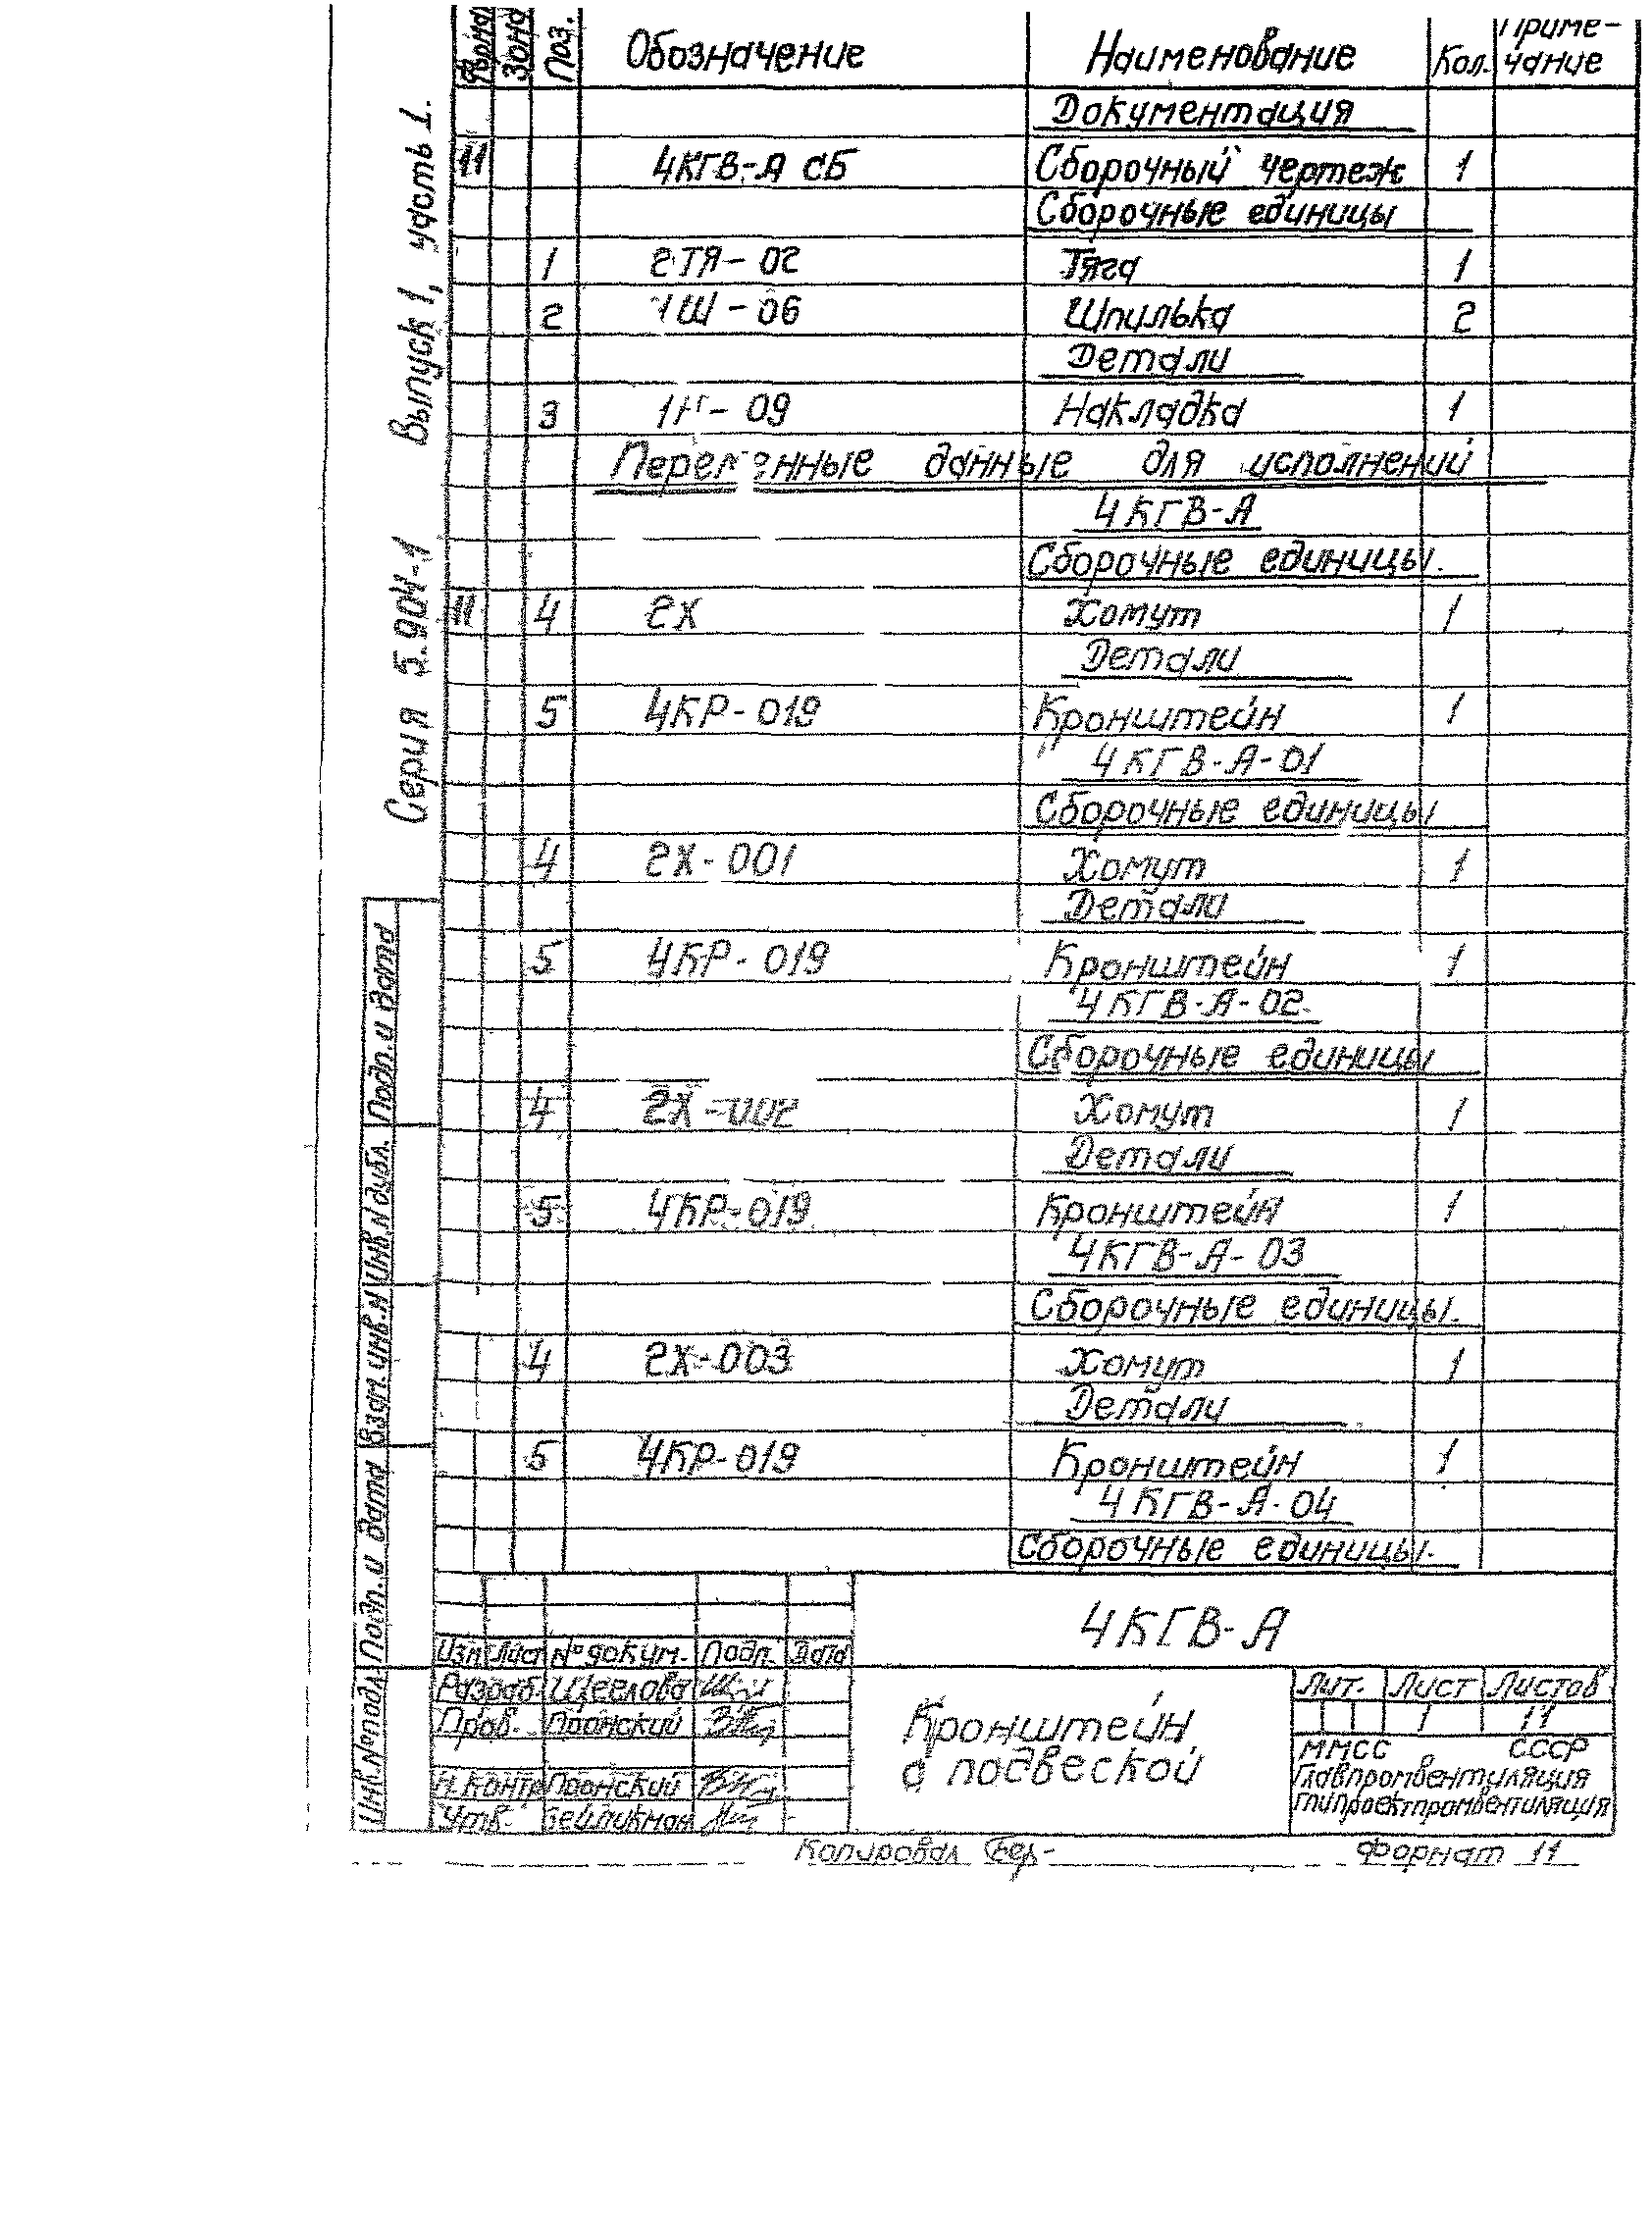 Формат Зона Поз. Обозначение Наименование Кол. Приме-
чание
Документация
11 4КГВ-А СБ Сборочный чертеж 1
Сборочные единицы
1 2ТЯ-02 Тяга 1
2 1Ш-06 Шпилька 2
Детали
3 1Н-09 Накладка 1
Переменные данные для исполнений
4КГВ-А
Сборочные единицы.
11 4 2Х Хомут 1
Детали
5 4КР-019 Кронштейн 1
4КГВ-А-01
Сборочные единицы
4 2Х-001 Хомут 1
Детали
5 4КР-019 Кронштейн 1
4КГВ-А-02.
Сборочные единицы
4 2Х-002 Хомут 1
Детали
5 4КР-019 Кронштейн 1
4КГВ-А-03
Сборочные единицы.
4 2Х-003 Хомут 1
Детали
5 4КР-019 Кронштейн 1
4КГВ-А-04
Сборочные единицы.
Серия 5.904-1 Выпуск 1, часть 1.
Подп. и дата
Инв. N дубл.
Взам. инв. N
Подп. и дата
Инв. №подл.
4КГВ-А
Изм Лист №докум. Подп. Дата
Разраб.
Пров. Пронский
Н.контр Пронский
Утв.
Кронштейн
с подвеской
Лит. Лист Листов
1 11
ММСС СССР
Главпромвентиляция
Гипроектпромвентиляция
Копировал Формат 11